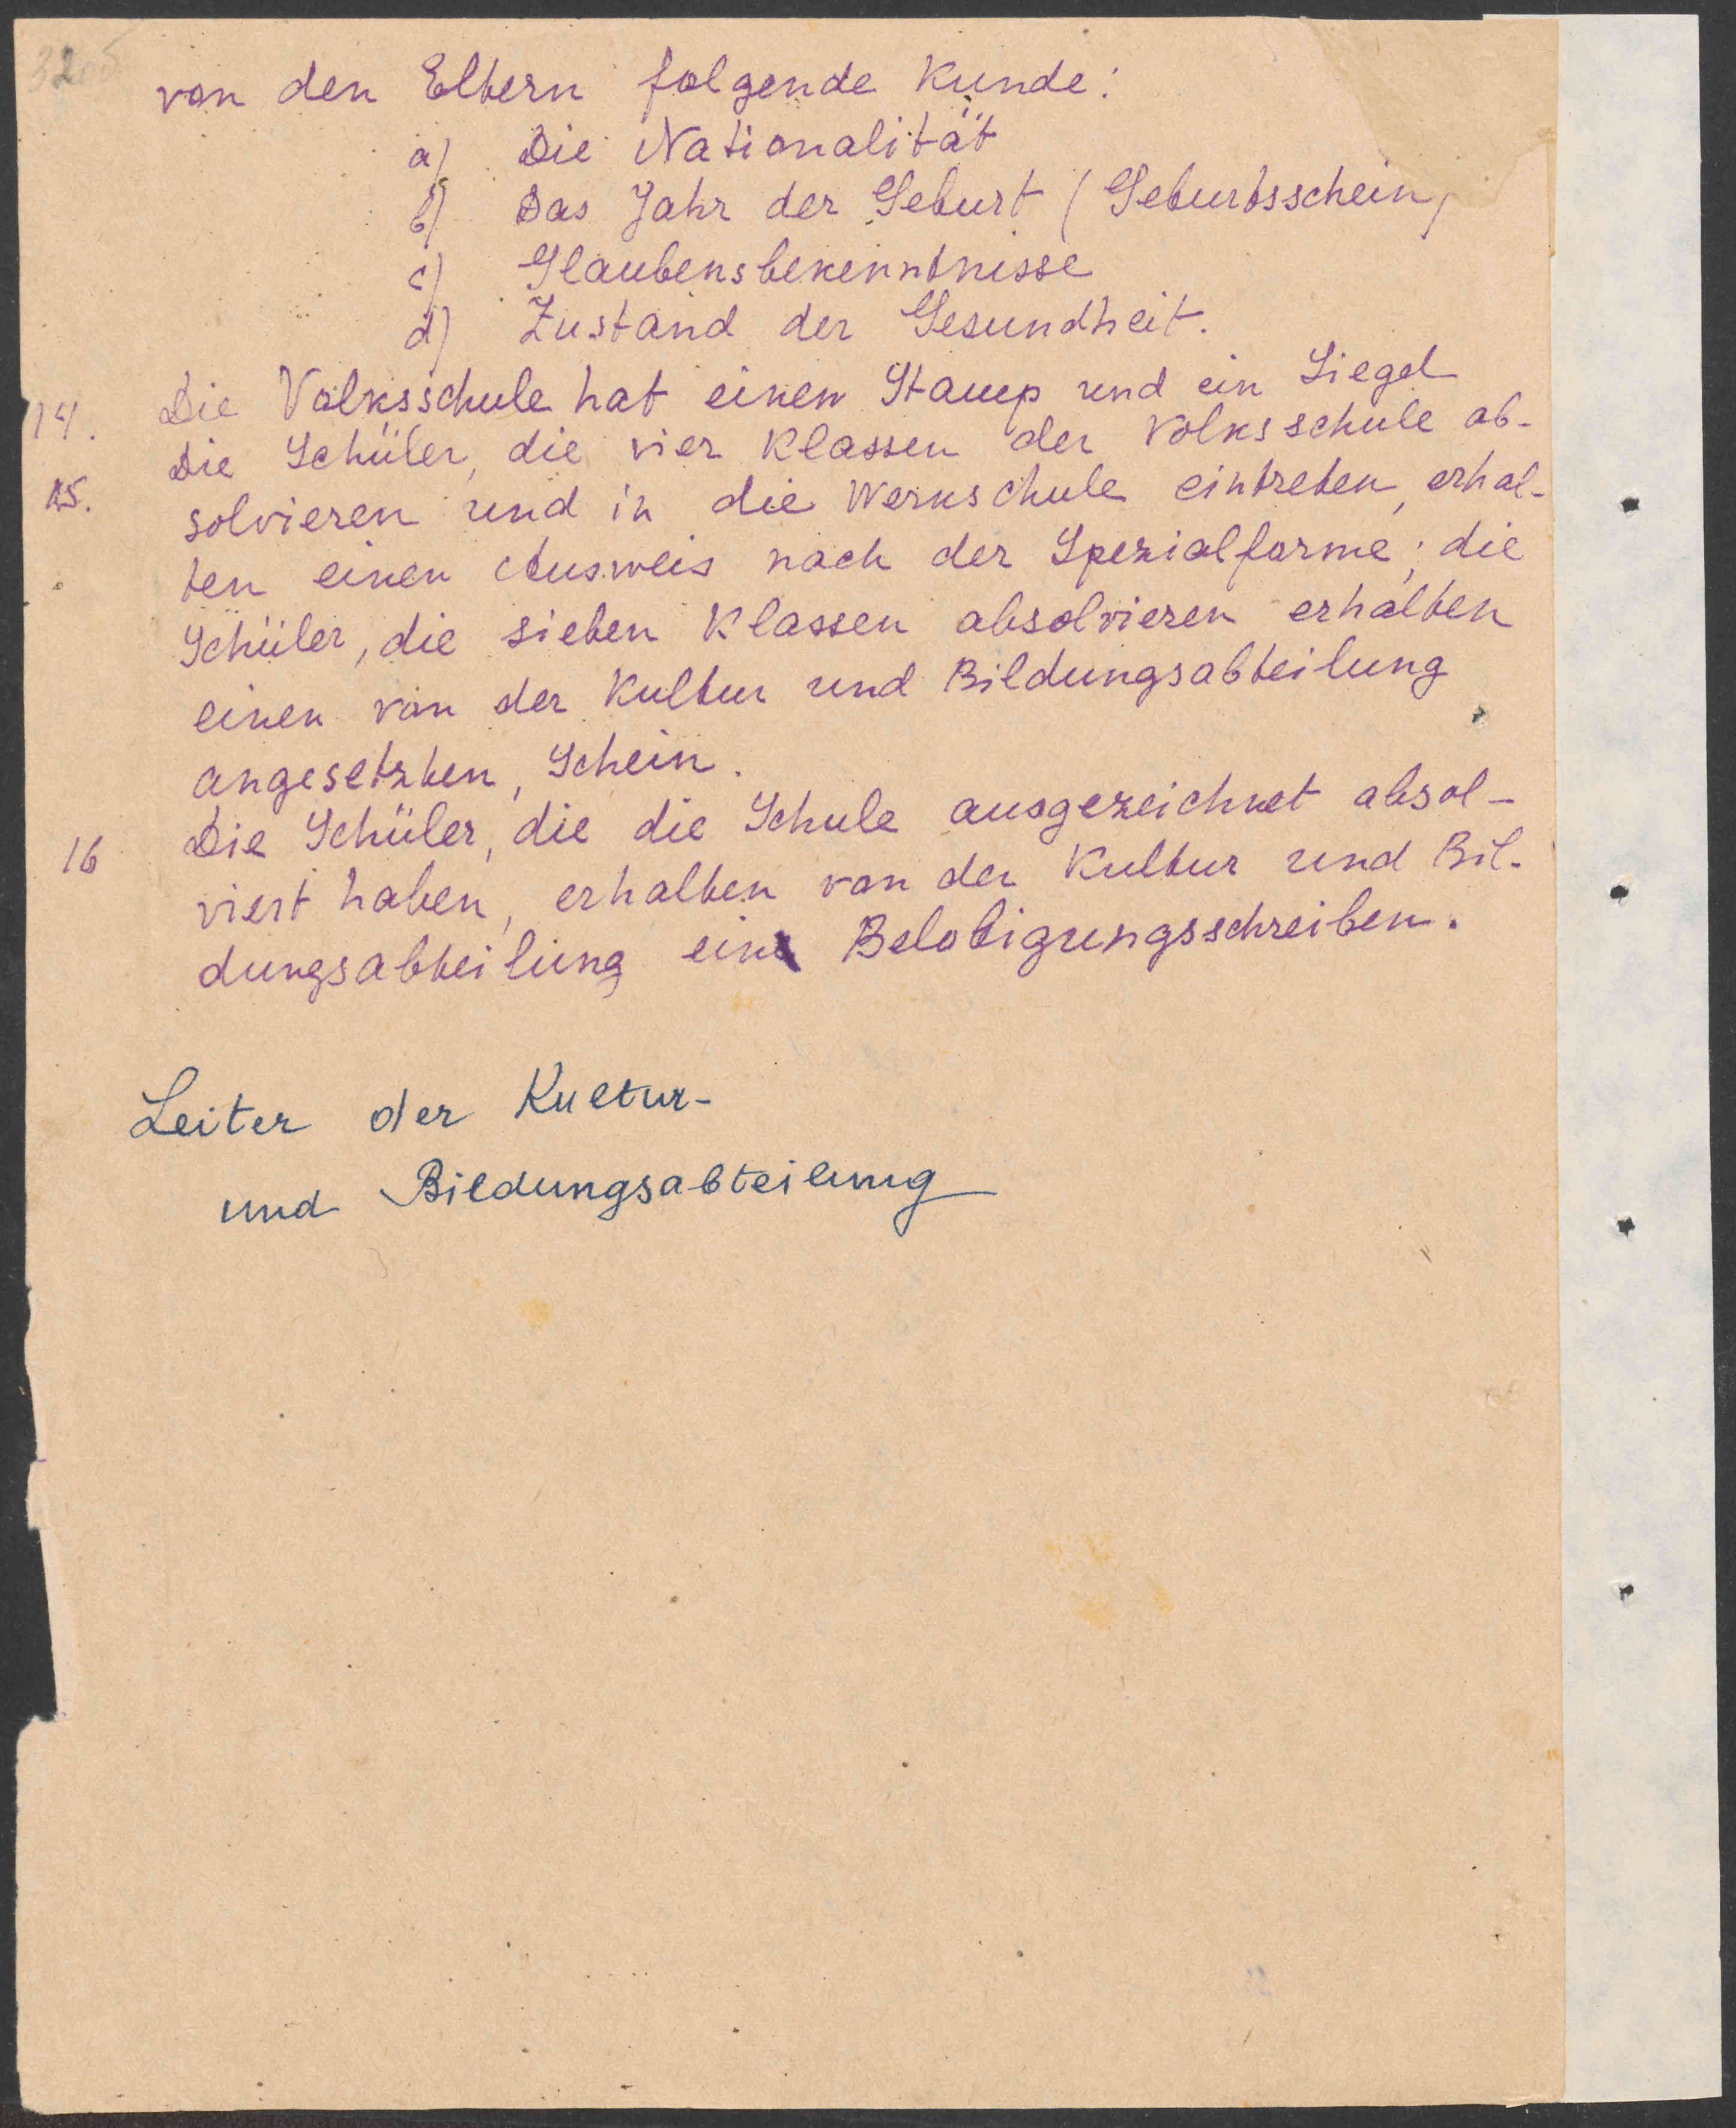 32об
von den Eltern folgende Kunde:
a) Die Nationalität
b) Das Jahr der Geburt (Geburtsschein)
c) Glaubensbekenntnisse
d) Zustand der Gesundheit.
14. Die Volksschule hat einen Stamp und ein Siegel
15. Die Schüler, die vier Klassen der Volksschule ab-
solvieren und in die Werkschule eintreten, erhal-
ten einen Ausweis nach der Spezialforme; die
Schüler, die sieben Klassen absolvieren erhalten
einen von der Kultur und Bildungsabteilung
angesetzten, Schein.
16 Die Schüler, die die Schule ausgezeichnet absol-
viert haben, erhalten von der Kultur und Bil-
dungsabteilung ein Belobigungsschreiben.
Leiter der Kultur-
und Bildungsabteilung